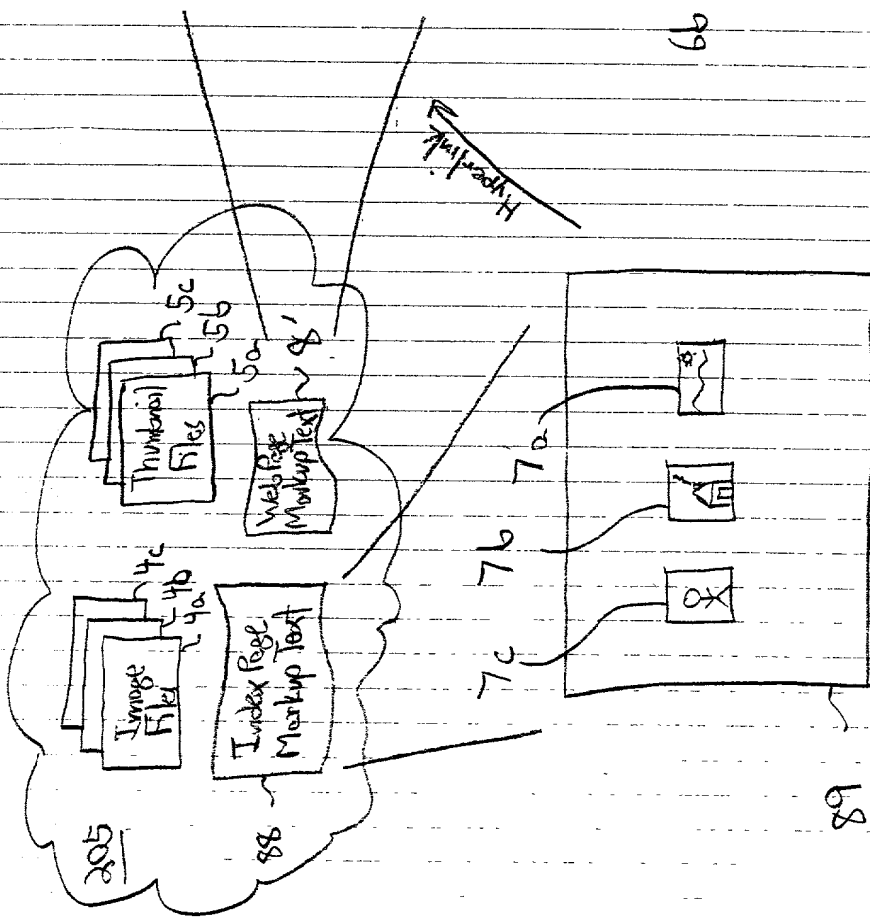 205
Image
Files
4a
4b
4c
Thumbnail
Files
5a
5b
5c
88
Index Page
Markup Text
Web Page
Markup Text
8'
Hyperlink
7c
7b
7a
89